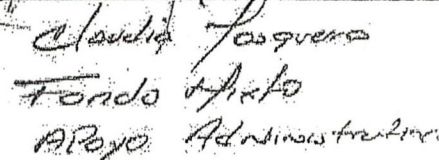 Claudia Mosquera
Fondo Mixto
Apoyo Administrativo